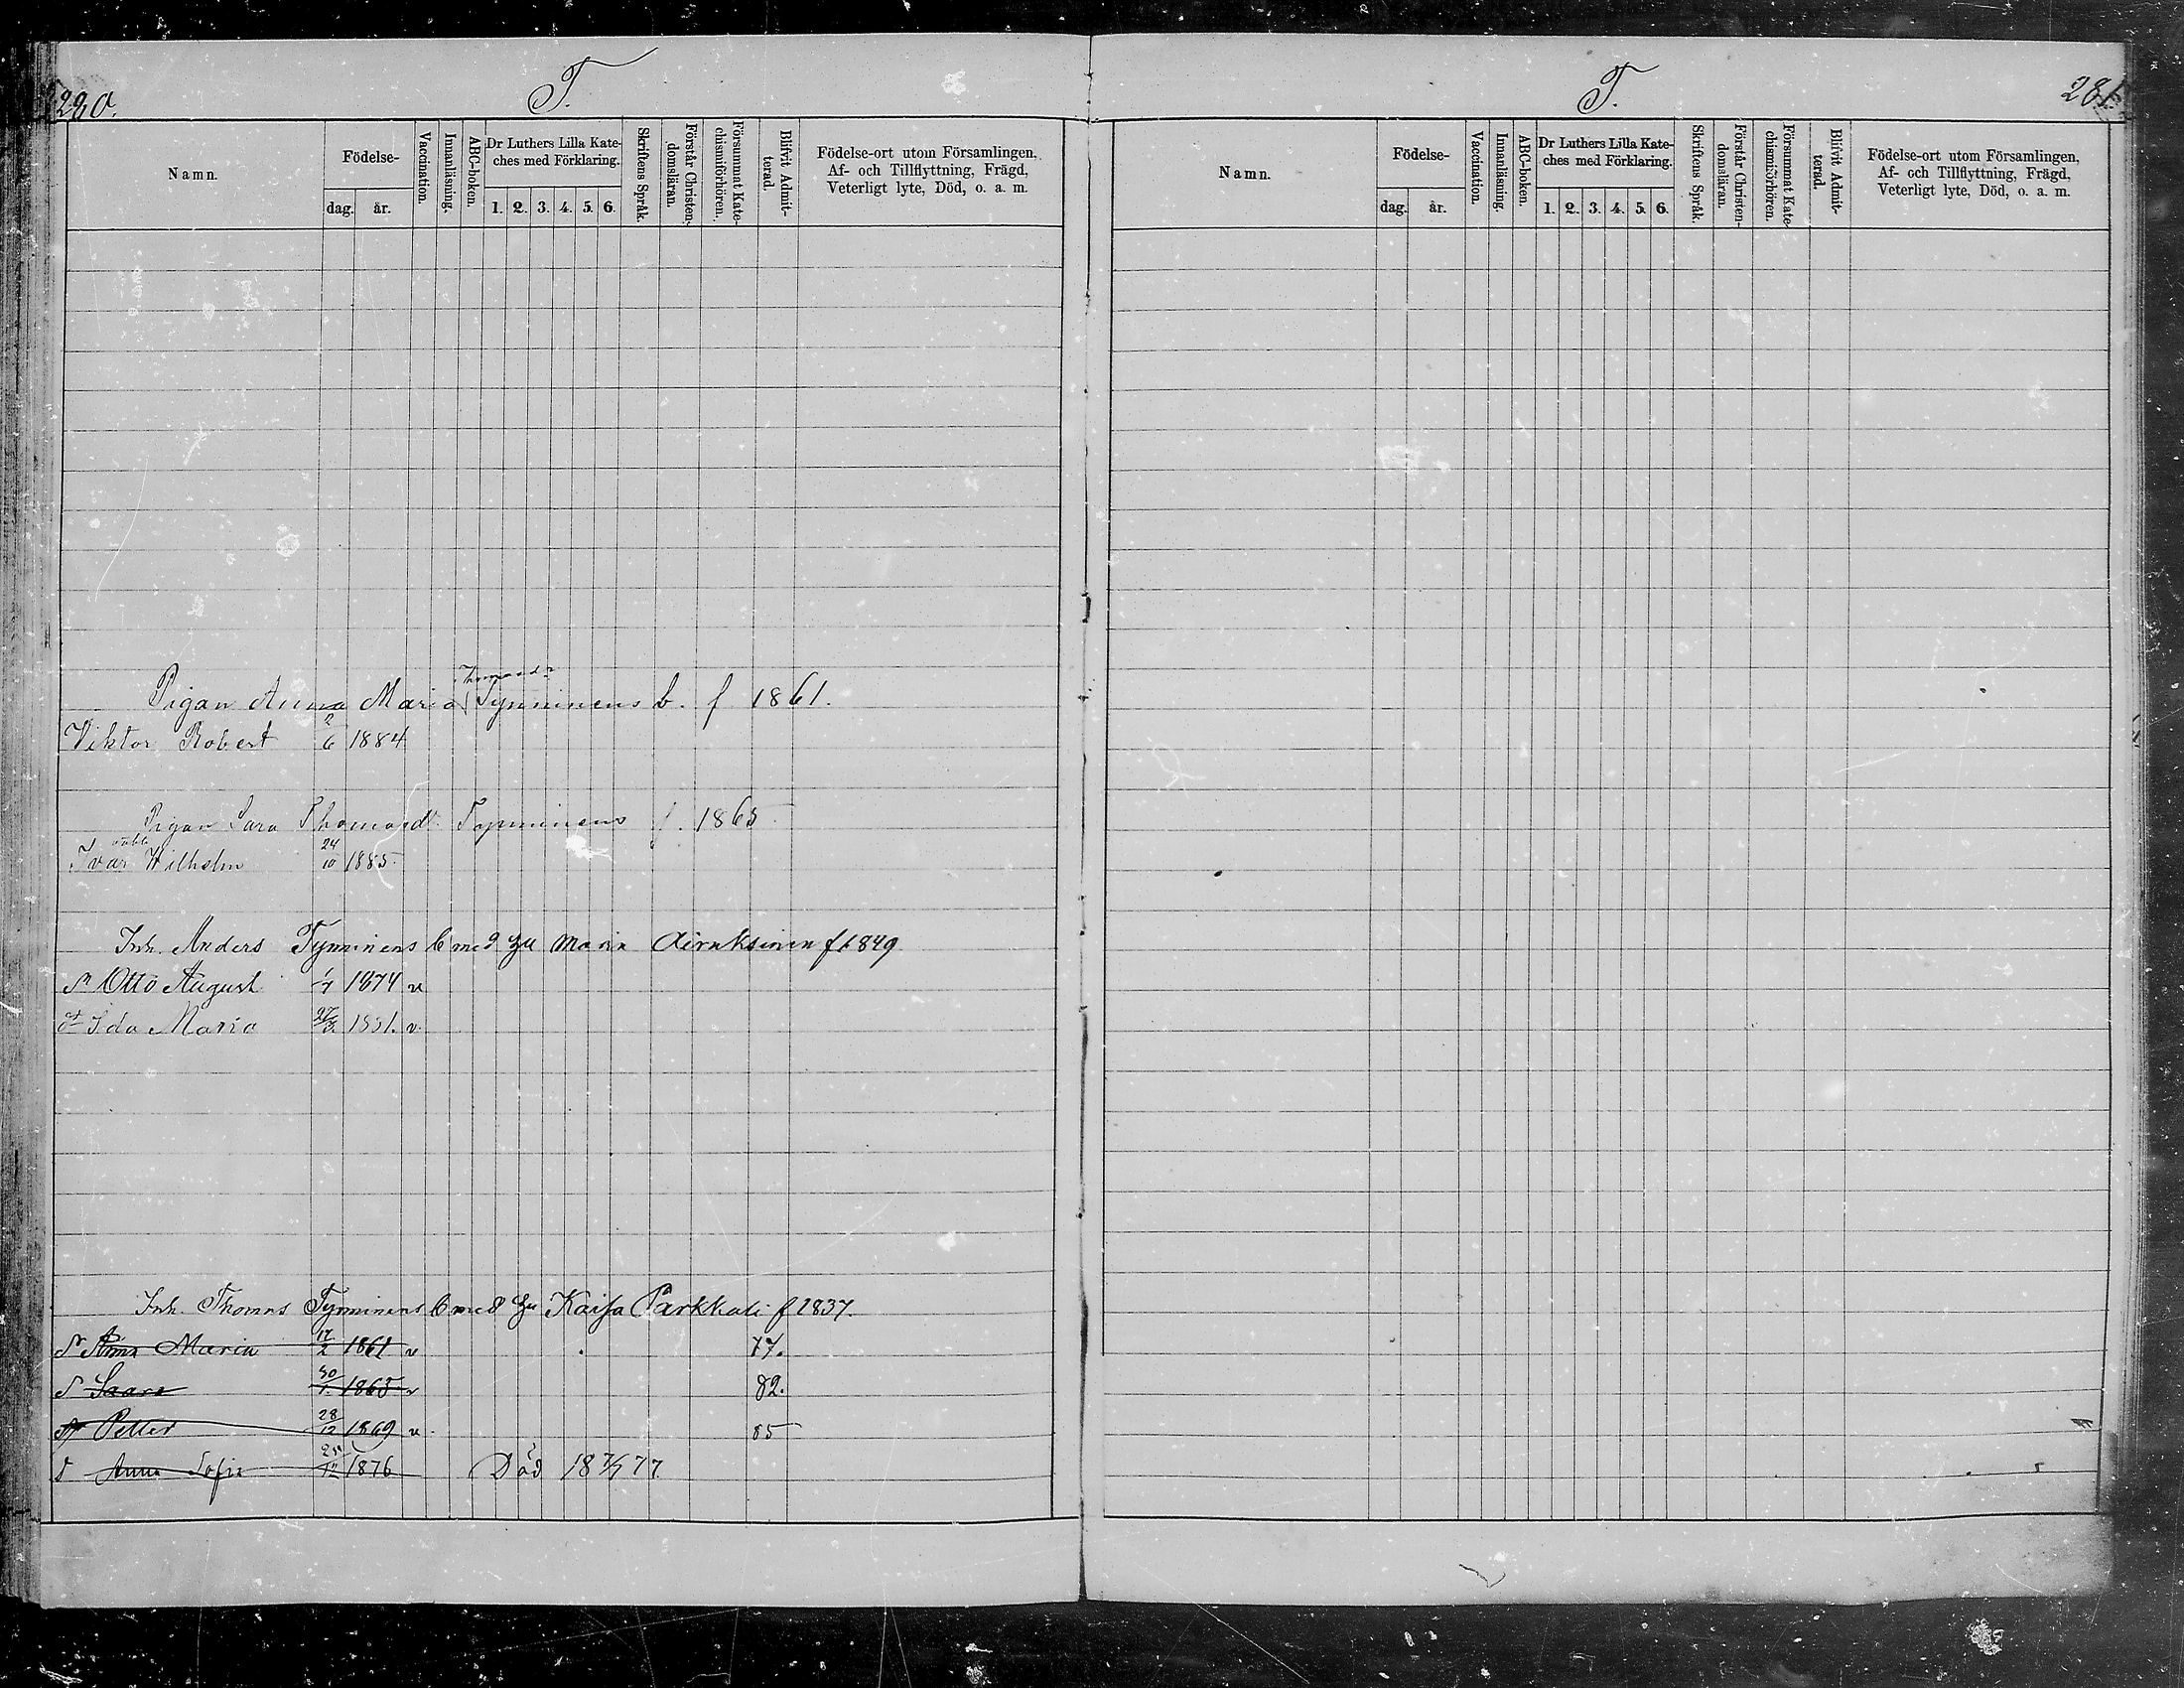 280.
T.
Namn.
Födelse-
dag.
år.
Vaccination.
Innanläsning.
ABC-boken.
Dr Luthers Lilla Kate-
ches med Förklaring.
1. 2. 3. 4. 5. 6.
Skriftens Språk.
Förstår Christen-
domsläran.
Försummat Kate-
chismiförhören.
Blifvit Admit-
terad.
Födelse-ort utom Församlingen,
Af- och Tillflyttning, Frägd,
Veterligt lyte, Död, o. a. m.
Thomasdr
Pigan Anna Maria Tynninens b. f 1861.
Viktor Robert 2/6 1884
Pigan Sara Thomasdr Tynninens f. 1865
Ivar Wilhelm 24/10 1885.
Inh. Anders Tynninens b med hu Maria Airaksinen f 1849
S Otto August 1/7 1874 v
dr Ida Maria 27/3 1881. v.
Inh. Thomas Tynninens b med hu Kaisa Parkkali f 1837.
d Anna Maria 17/2 1861 v 77.
d Saara 30/1. 1865 v 82.
Petter 28/12 1869 v. 85
d Anna Sofia 25/12 1876 Död 18 7/7 77.
T.
281
Namn.
Födelse-
dag.
år.
Vaccination.
Innanläsning.
ABC-boken.
Dr Luthers Lilla Kate-
ches med Förklaring.
1. 2. 3. 4. 5. 6.
Skriftens Språk.
Förstår Christen-
domsläran.
Försummat Kate-
chismiförhören.
Blifvit Admit-
terad.
Födelse-ort utom Församlingen,
Af- och Tillflyttning, Frägd,
Veterligt lyte, Död, o. a. m.